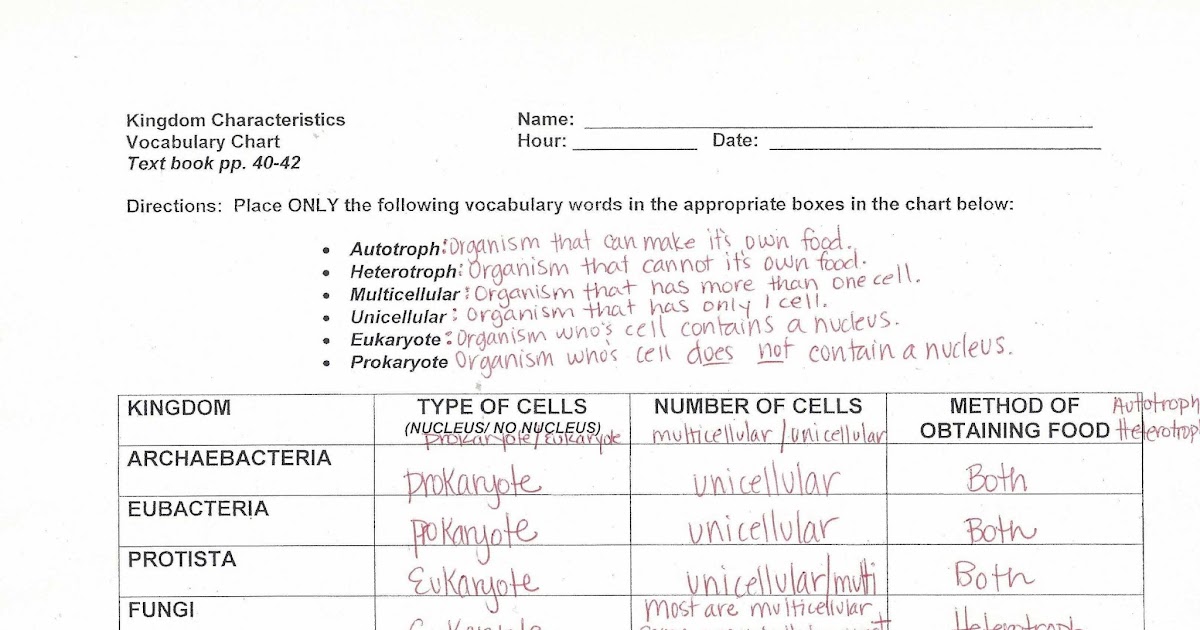 Kingdom Characteristics Name:
Vocabulary Chart Hour: Date:
Text book pp. 40-42
Directions: Place ONLY the following vocabulary words in the appropriate boxes in the chart below:
• Autotroph: Organism that can make it's own food.
• Heterotroph: Organism that cannot it's own food.
• Multicellular: Organism that has more than one cell.
• Unicellular: Organism that has only 1 cell.
• Eukaryote: Organism who's cell contains a nucleus.
• Prokaryote Organism who's cell does not contain a nucleus.
KINGDOM TYPE OF CELLS NUMBER OF CELLS METHOD OF Autotroph
(NUCLEUS/ NO NUCLEUS) OBTAINING FOOD Heterotrop
prokaryote/Eukaryote multicellular/unicellular
ARCHAEBACTERIA prokaryote unicellular Both
EUBACTERIA proKaryote unicellular Both
PROTISTA Eukaryote unicellular/multi Both
FUNGI Most are multicellular